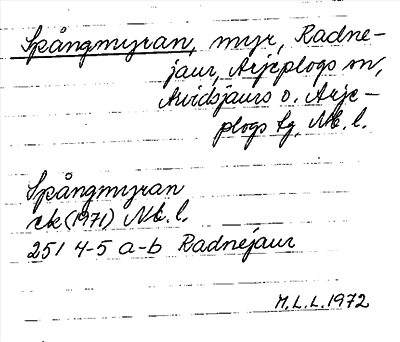 Spångmyran, myr, Radne-
jaur, Arjeplogs sn,
Arvidsjaurs o. Arje-
plogs tg, Nb. l.
Spångmyran
ek (1971) Nb. l.
251 4-5 a-b Radnejaur
M.L.L. 1972